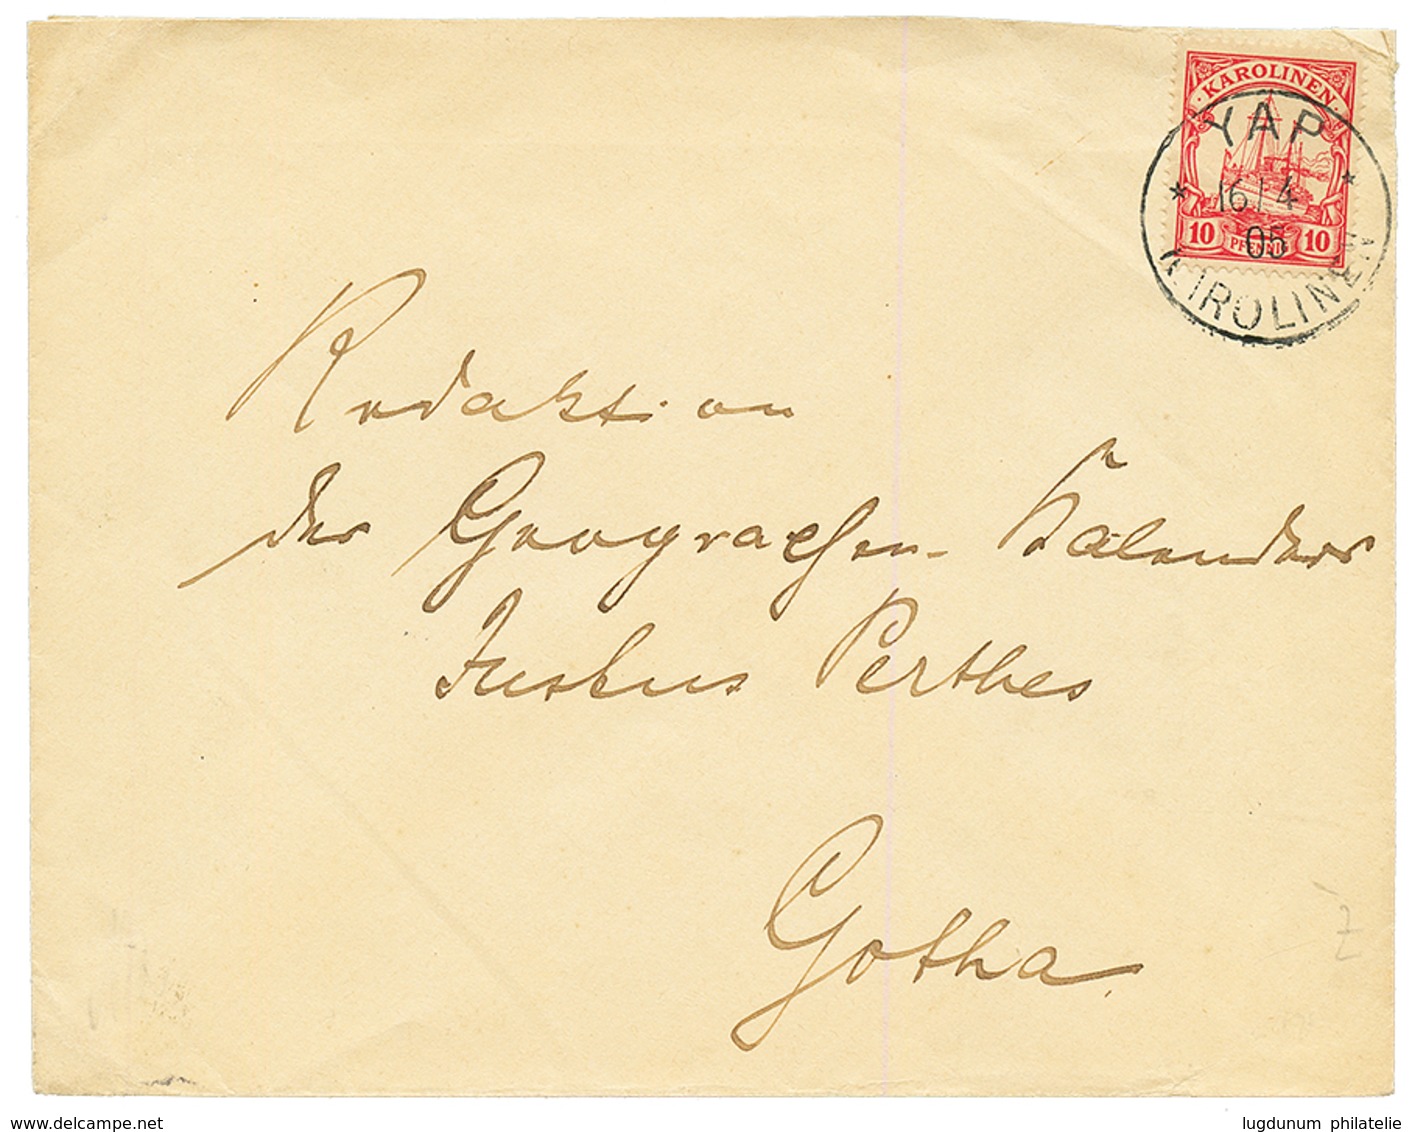 KAROLINEN
YAP
16/4
05
10 PFENNIG 10
KAROLINEN
Redaktion
des Geographen-Kalenders
Justus Perthes
Gotha.
Z
www.delcampe.net
lugdunum philatelie